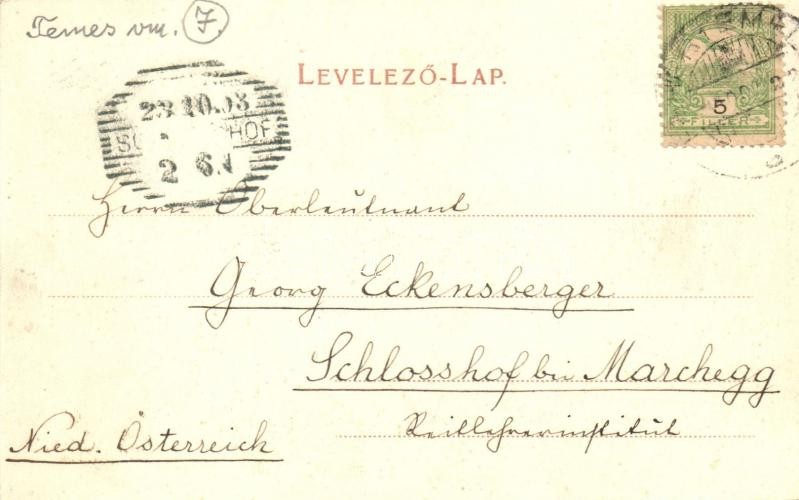 Temes vm. 7
LEVELEZŐ-LAP.
5
FILLER
23 10 03
HOF
2 6
Herrn Oberleutnant
Georg Eckensberger
Schlosshof bei Marchegg
Reitlehrerinstitut
Nied. Österreich